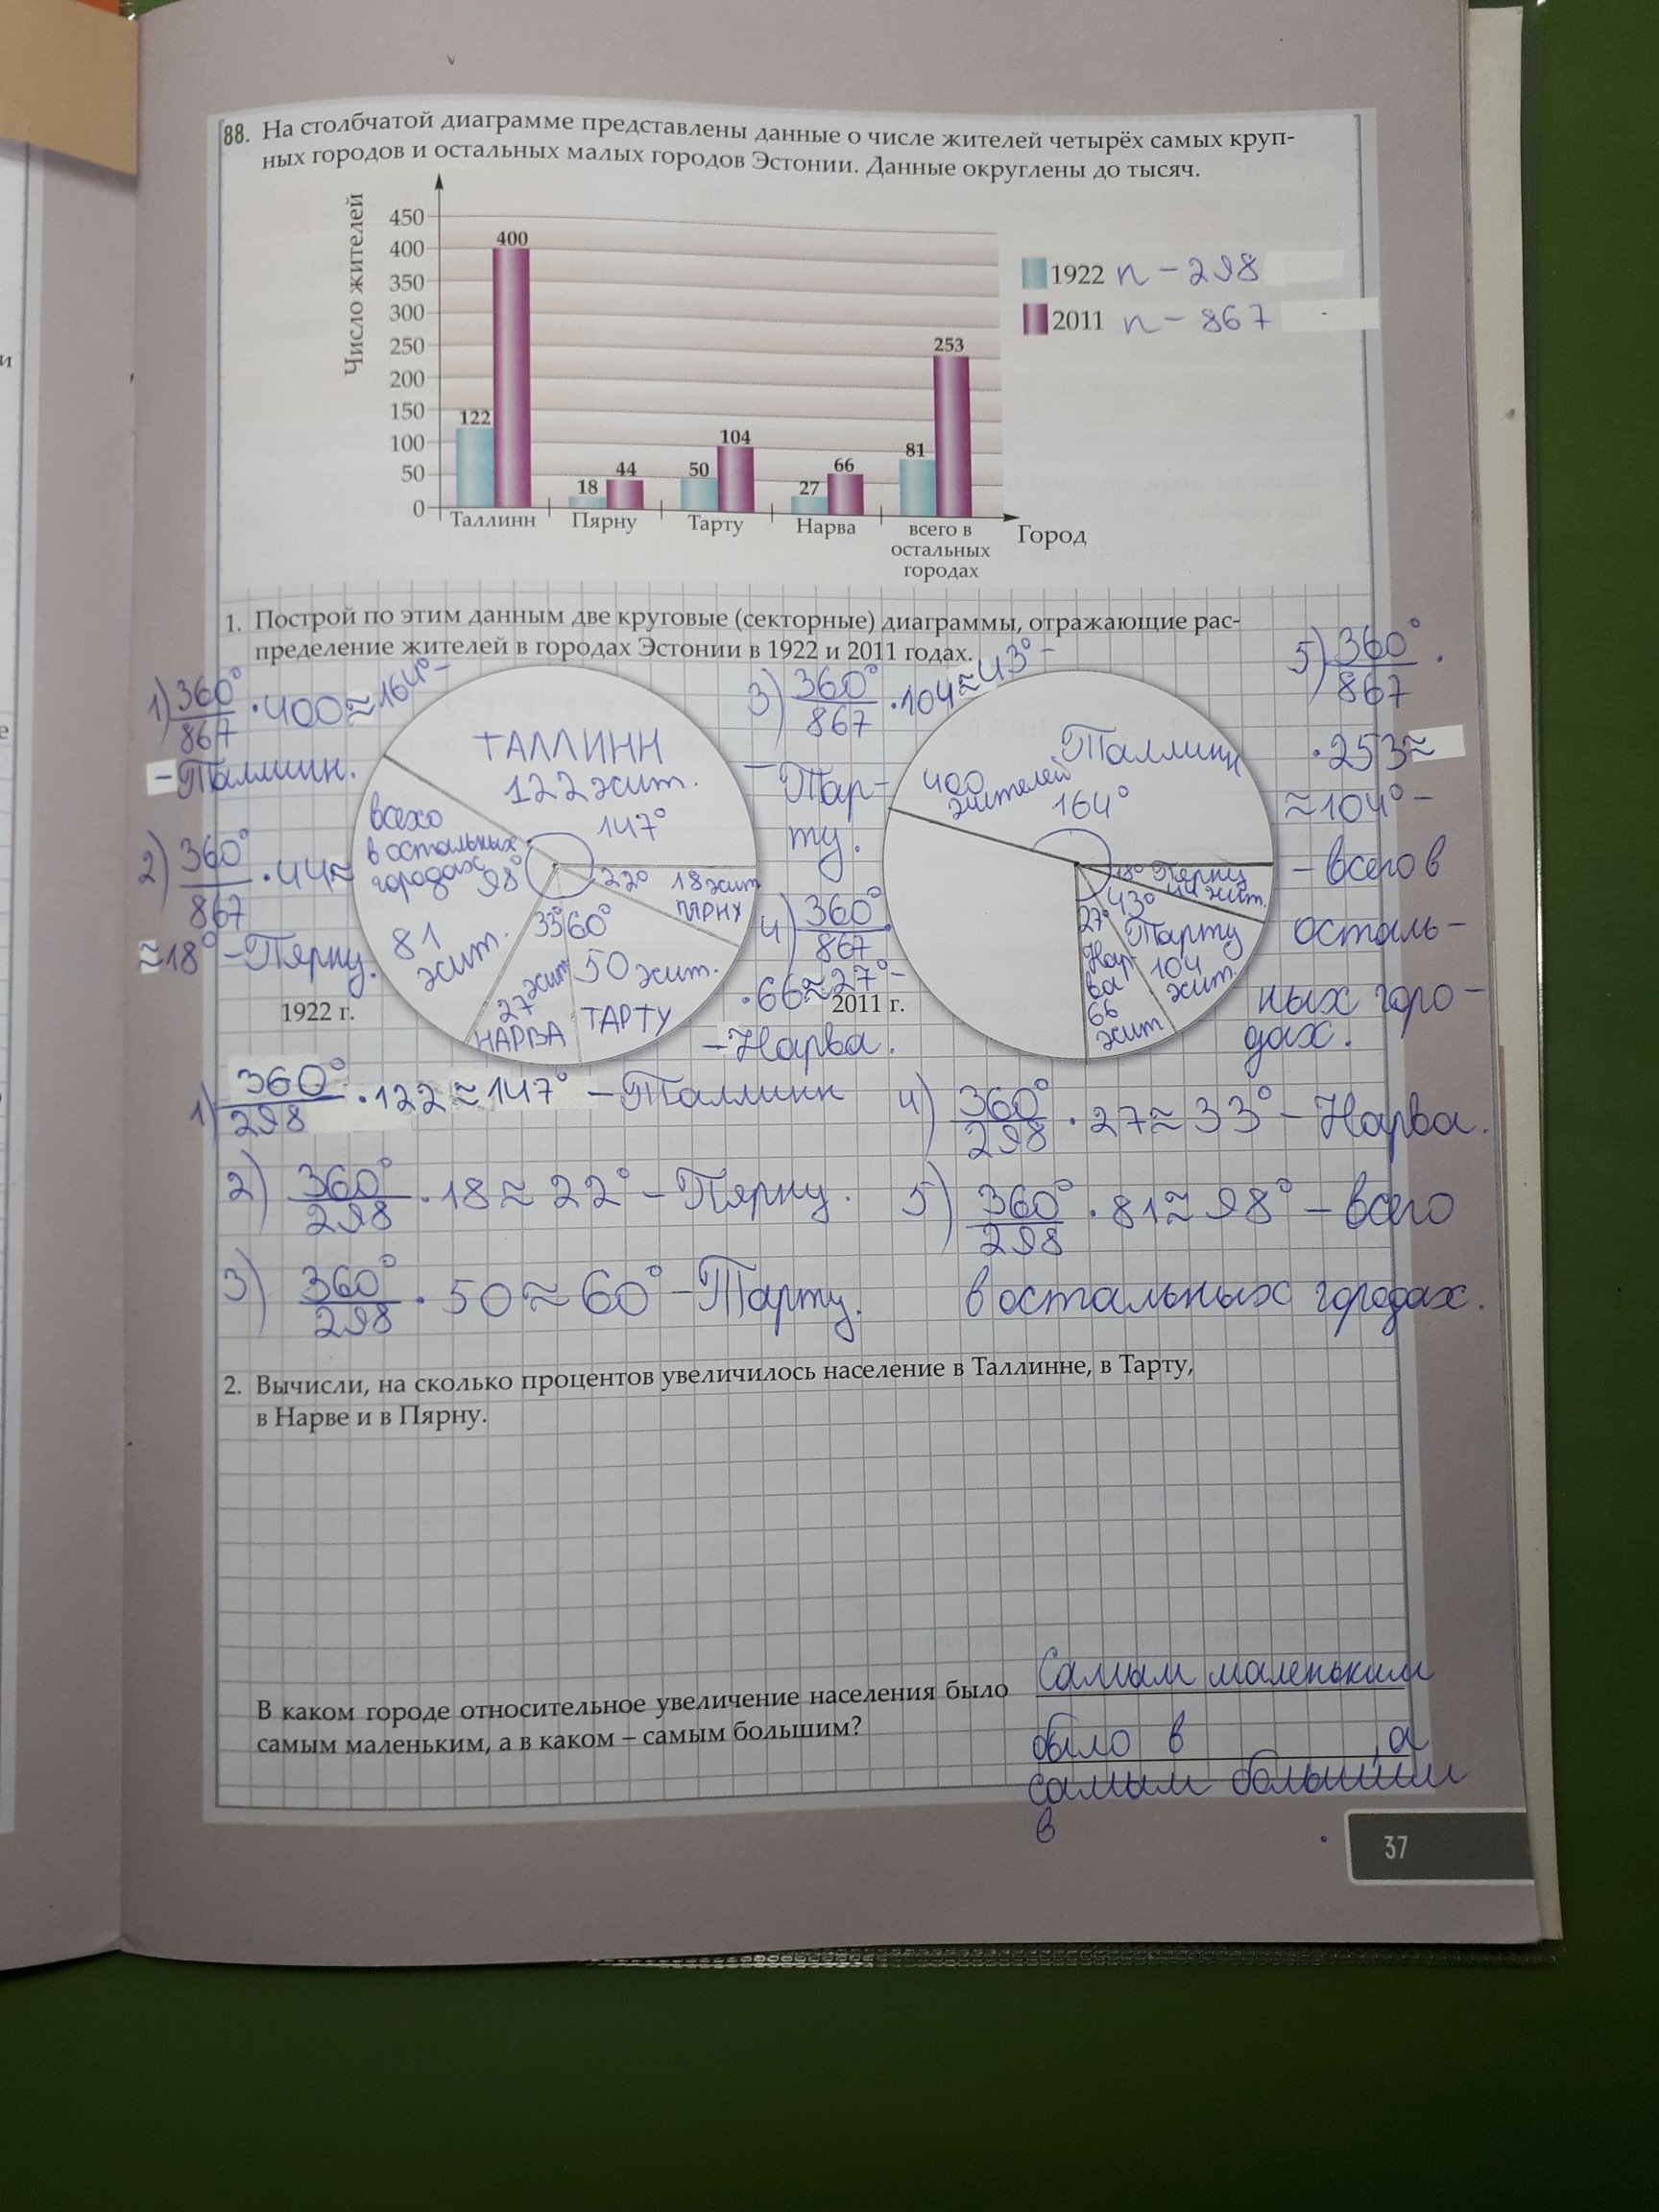 88. На столбчатой диаграмме представлены данные о числе жителей четырёх самых круп-
ных городов и остальных малых городов Эстонии. Данные округлены до тысяч.
Число жителей
450
400
350
300
250
200
150
100
50
0
122
400
18
44
50
104
27
66
81
253
Таллинн
Пярну
Тарту
Нарва
всего в
остальных
городах
Город
1922 n - 298
2011 n - 867
1. Построй по этим данным две круговые (секторные) диаграммы, отражающие рас-
пределение жителей в городах Эстонии в 1922 и 2011 годах.
1) 360°/867 · 400 ≈ 164° -
- Таллинн.
2) 360°/867 · 44 ≈
≈ 18° - Пярну.
ТАЛЛИНН
122 жит.
147°
всего
в остальных
городах
98°
81
жит.
22° 18 жит
ПЯРНУ
33° 60°
50 жит.
ТАРТУ
27 жит
НАРВА
1922 г.
3) 360°/867 · 104 ≈ 43° -
- Тар-
ту.
4) 360°/867
· 66 ≈ 27° -
- Нарва.
2011 г.
Таллинн
400
жителей
164°
18° Пярну
44 жит.
43°
Тарту
104
жит.
27°
Нар-
ва
66
жит
5) 360°/867 ·
· 253 ≈
≈ 104° -
- всего в
осталь-
ных горо-
дах.
1) 360°/298 · 122 ≈ 147° - Таллинн
2) 360°/298 · 18 ≈ 22° - Пярну.
3) 360°/298 · 50 ≈ 60° - Тарту.
4) 360°/298 · 27 ≈ 33° - Нарва.
5) 360°/298 · 81 ≈ 98° - всего
в остальных городах.
2. Вычисли, на сколько процентов увеличилось население в Таллинне, в Тарту,
в Нарве и в Пярну.
В каком городе относительное увеличение населения было
самым маленьким, а в каком – самым большим?
Самым маленьким
было в , а
самым большим
в .
37